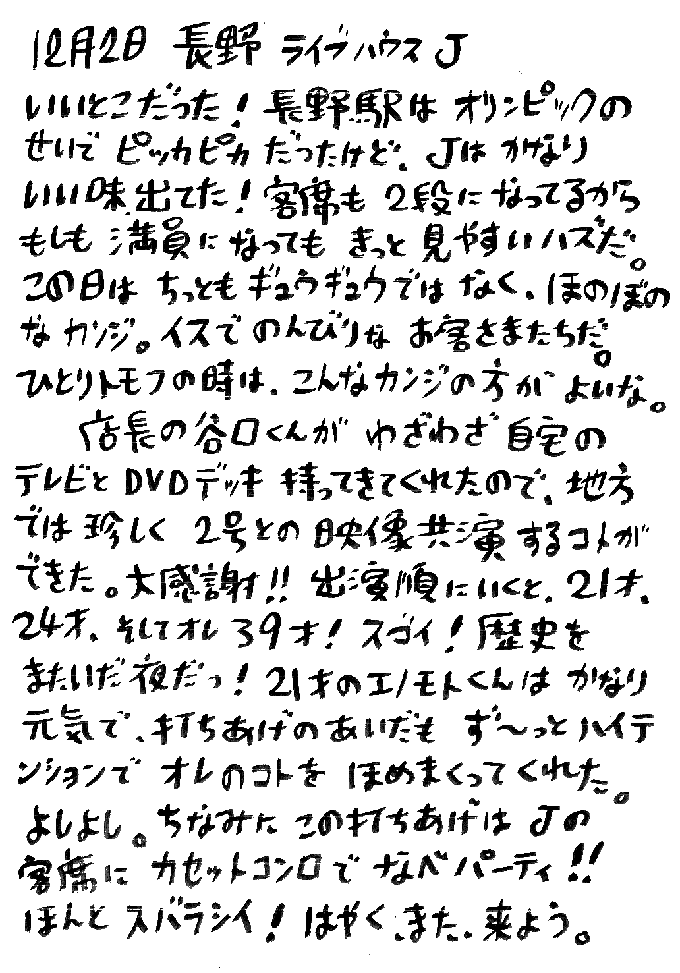 12月2日 長野 ライブハウス J
いいとこだった！長野駅は オリンピックの
せいで ピッカピカ だったけど、Jは かなり
いい味出てた！客席も 2段に なってるから
もしも 満員に なっても きっと 見やすいハズだ。
この日は ちっとも ギュウギュウでは なく、ほのぼの
な カンジ。イスで のんびりな お客さまたちだ。
ひとりトモフの時は、こんなカンジの方が よいな。
店長の谷口くんが わざわざ 自宅の
テレビと DVDデッキ 持ってきてくれたので、地方
では 珍しく 2号との 映像共演 するコトが
できた。大感謝!! 出演順にいくと、21才、
24才、そしてオレ 39才！スゴイ！歴史を
またいだ 夜だっ！21才のエノモトくんは かなり
元気で、打ちあげのあいだも ず〜っと ハイテ
ンションで オレのコトを ほめまくってくれた。
よしよし。ちなみに この打ちあげは Jの
客席に カセットコンロで なべパーティ!!
ほんと スバラシイ！はやく、また、来よう。